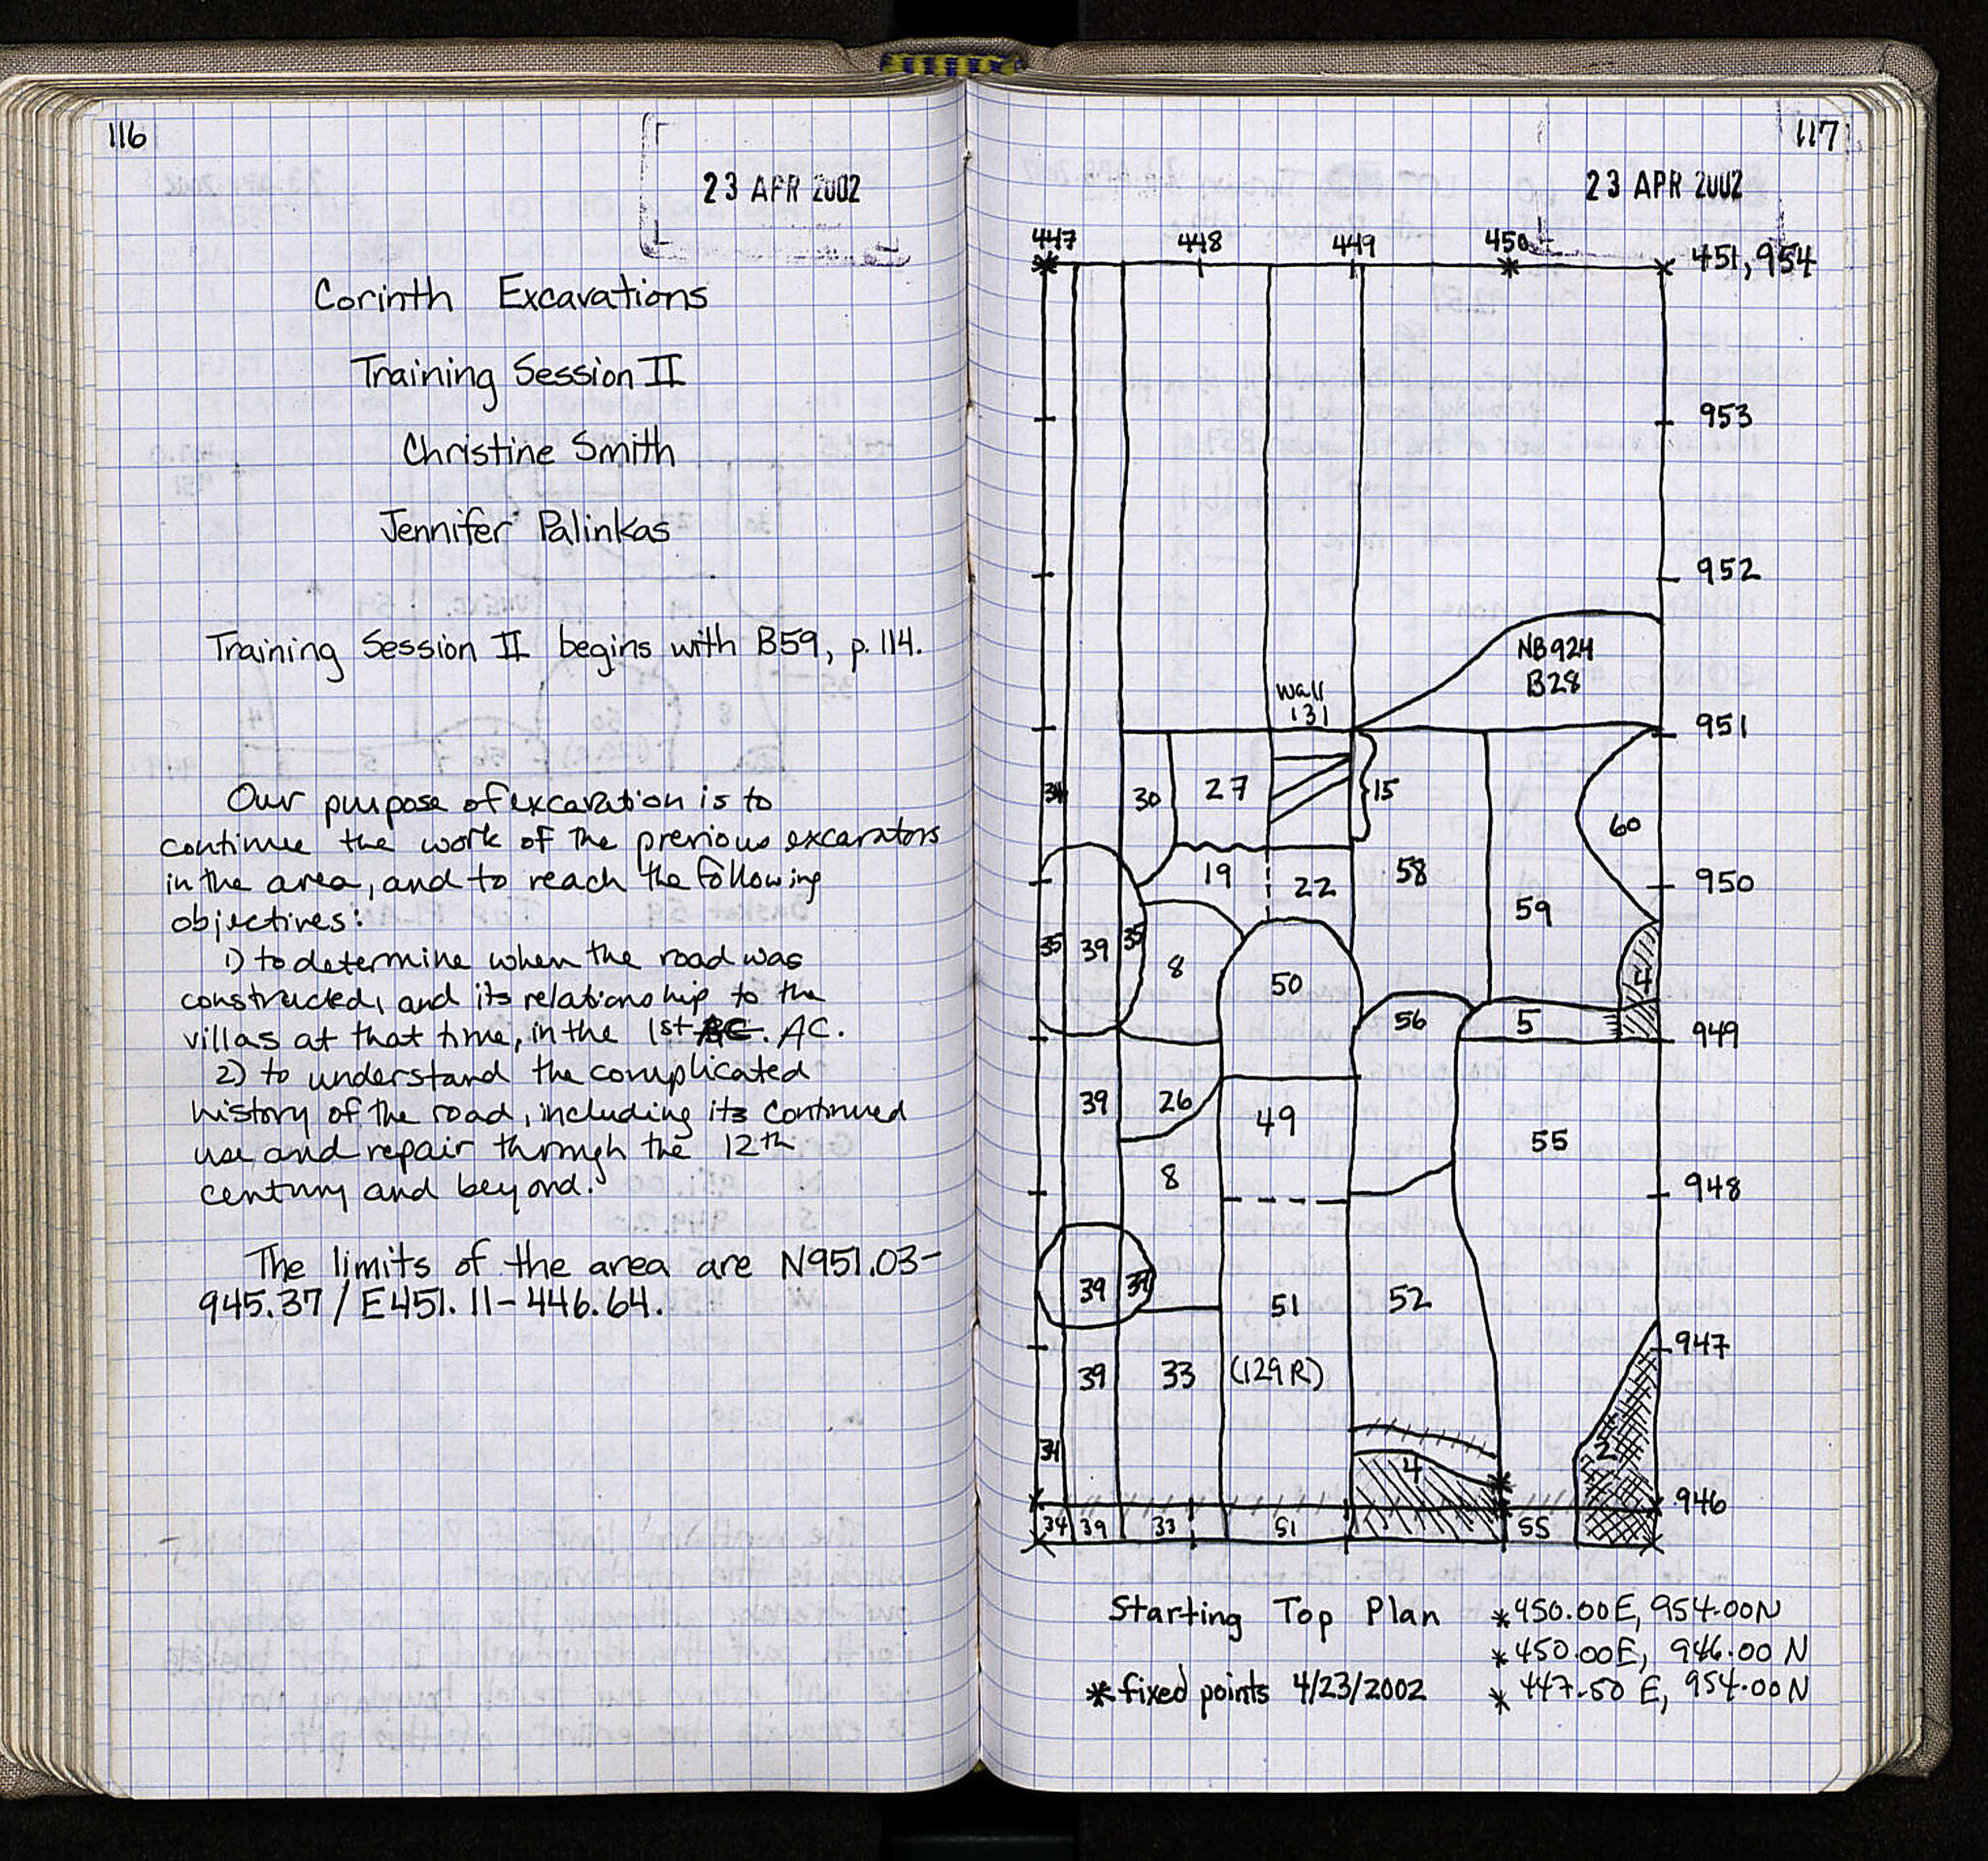 116
23 APR 2002
Corinth Excavations
Training Session II
Christine Smith
Jennifer Palinkas
Training Session II begins with B59, p. 114.
Our purpose of excavation is to
continue the work of the previous excavators
in the area, and to reach the following
objectives:
1) to determine when the road was
constructed, and its relationship to the
villas at that time, in the 1st BC. AC.
2) to understand the complicated
history of the road, including its continued
use and repair through the 12th
century and beyond.
The limits of the area are N951.03-
945.37 / E451.11-446.64.
117
23 APR 2002
447 448 449 450 451, 954
953
952
NB924
B28
Wall
131
951
34 30 27 15
60
19 22 58 950
59
35 39 35 8 50 4
56 5 949
39 26 49
55
8 948
39 39 51 52
947
39 33 (129R)
34 2
4
946
34 39 33 51 55
Starting Top Plan
*450.00E, 954.00N
*450.00E, 946.00 N
*fixed points 4/23/2002
* 447.50 E, 954.00N